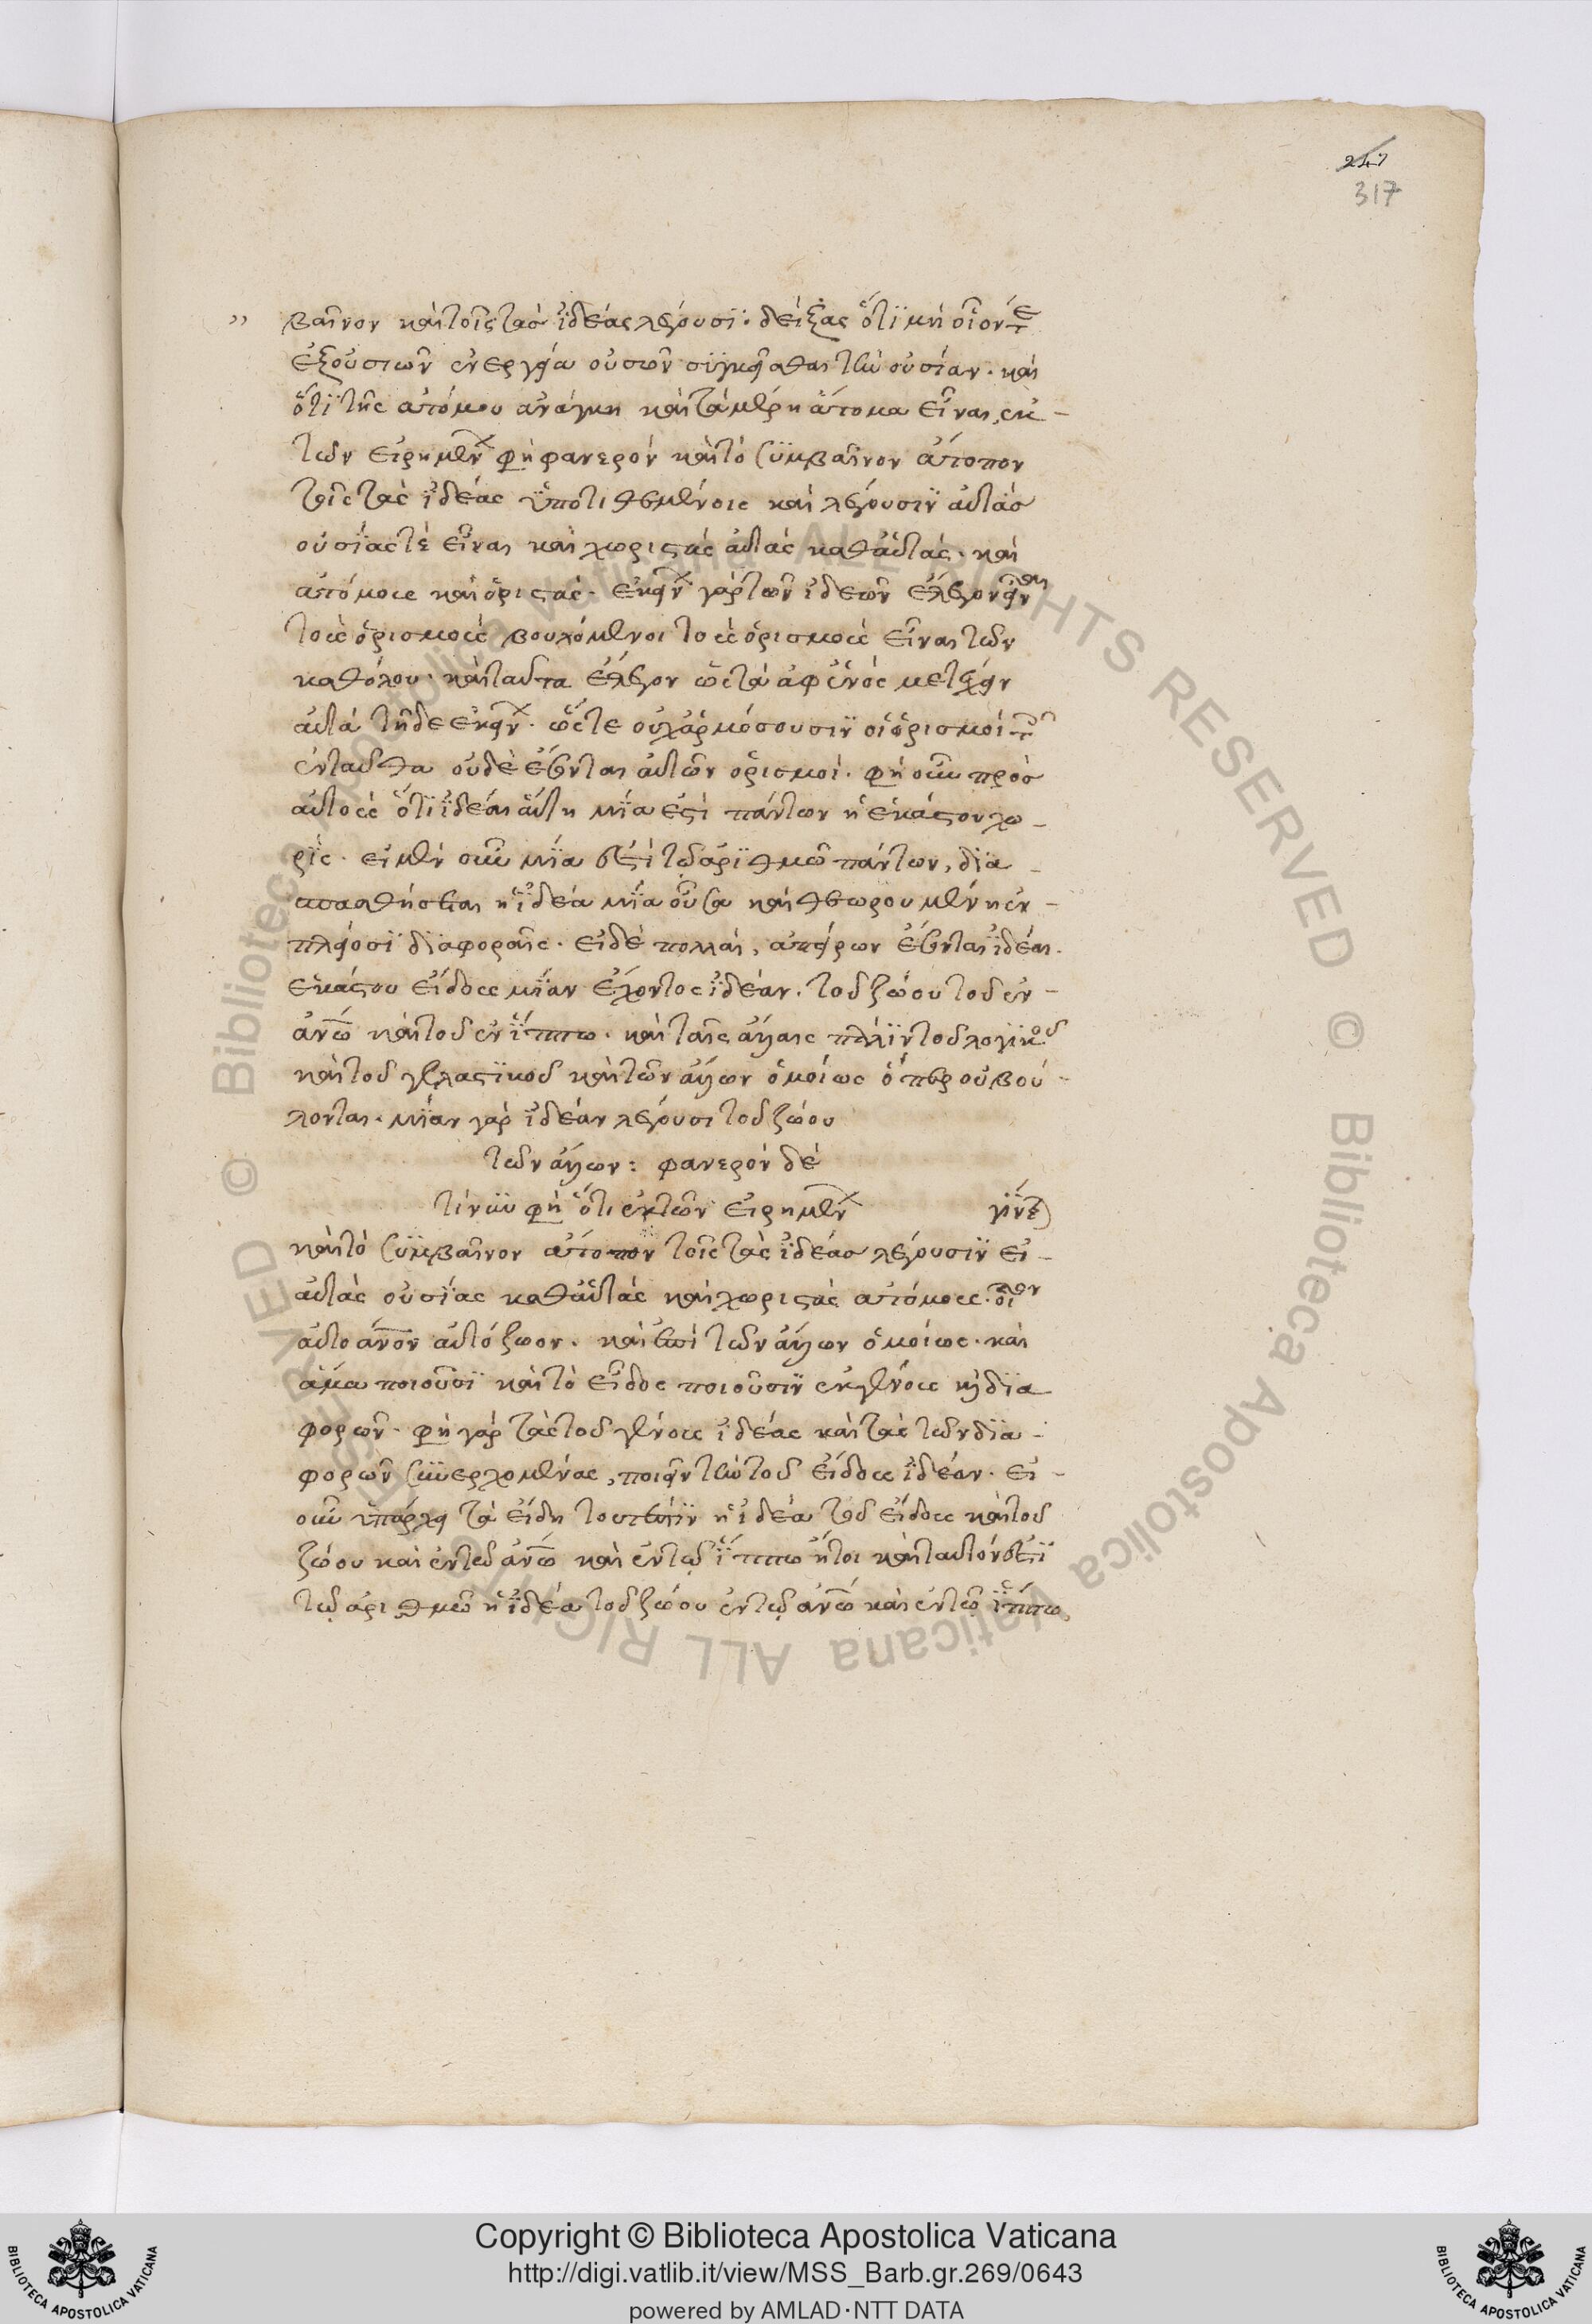 247
317
„ βαῖνον καὶ τοῖς τὰς ἰδέας λέγουσϊ· δείξας ὅτϊ μὴ οἷόν τε
ἐξ οὐσιῶν ἐνεργείᾳ οὐσῶν συγκεῖσθαι τὴν οὐσίαν. καὶ
ὅτϊ τῆς ἀτόμου ἀνάγκη καὶ τὰ μέρη ἄτομα εἶναι, ἐκ -
τῶν εἰρημέν φὴ φανερὸν καὶ τὸ συμβαῖνον ἄτοπον
τοῖς τὰς ἰδέας ὑποτιθεμένοις καὶ λέγουσϊν αὐτὰς
οὐσίας τὲ εἶναι καὶ χωριστὰς αὐτὰς καθ' αὑτάς. καὶ
ἀτόμους καὶ ὁριστάς. ἐκείν γὰρ τῶν ἰδεῶν ἔλεγον εἶναι
τοὺς ὁρισμοὺς βουλόμενοι τοὺς ὁρισμοὺς εἶναι τῶν
καθόλου. καὶ ταῦτα ἔλεγον ὡς τὰ ἀφ' ἑνὸς μετέχειν
αὐτὰ τῆδε ἐκείν. ὥστε οὐχ' ἁρμόσουσιν οἱ ὁρισμοὶ τ
ἐνταῦθα οὐδὲ ἔσονται αὐτῶν ὁρισμοί. φὴ οὖν πρὸς
αὐτοὺς ὅτϊ ἰδέαι αὕτη μΐα ἐστὶ πάντων ἢ ἑκάστου χω -
ρΐς. εἰ μὲν οὖν μΐα ἐστὶ τῷ ἀρϊθμῷ πάντων, δϊα -
σπασθήσεται ἡ ἰδέα μΐα οὖσα καὶ θεωρουμένη ἐν -
πλείοσϊ διαφοραῖς. εἰ δὲ πολλαὶ, ἀπείρων ἔσονται ἰδέαι.
ἑκάστου εἴδους μΐαν ἔχοντος ἰδέαν. τοῦ ζώου τοῦ ἐν -
ἀνῶ καὶ τοῦ ἐν ἵππω. καὶ ταῖς ἄλλαις πάλϊν τοῦ λογϊκοῦ
καὶ τοῦ γελαστϊκοῦ καὶ τῶν ἄλλων ὁμοίως ὅπερ οὐ βού -
λονται. μΐαν γὰρ ἰδέαν λέγουσι τοῦ ζώου
τῶν ἄλλων: φανερὸν δὲ
τίνυν φὴ ὅτι ἐκ τῶν εἰρημέν γίνετ
καὶ τὸ συμβαῖνον ἄτοπον τοῖς τὰς ἰδέας λέγουσϊν εἰ -
αὐτὰς οὐσΐας καθ' αὑτὰς καὶ χωριστὰς ἀτόμους. οἷον
αὐτοάνον αὐτόζωον. καὶ ἐπὶ τῶν ἄλλων ὁμοίως. καὶ
ἅμα ποιοῦσϊ καὶ τὸ εἶδος ποιοῦσϊν ἐκ γένους κὴ δϊα
φορῶν. φὴ γὰρ τὰς τοῦ γένους ἰδέας καὶ τὰς τῶν δϊα -
φορῶν συνερχομένας, ποιεῖν τὴν τοῦ εἴδους ἰδέαν. εἰ -
οὖν ὑπάρχει τὰ εἴδη τουτέστϊν ἡ ἰδέα τοῦ εἴδους καὶ τοῦ
ζώου καὶ ἐν τῶ ἀνῶ καὶ ἐν τῷ ἵππω ἤτοι καὶ ταυτόν ἐστϊ
τῷ ἀριθμῷ ἡ ἰδέα τοῦ ζώου ἐν τῷ ἀνῶ καὶ ἐν τῷ ἵππω,
Copyright © Biblioteca Apostolica Vaticana
http://digi.vatlib.it/view/MSS_Barb.gr.269/0643
powered by AMLAD·NTT DATA